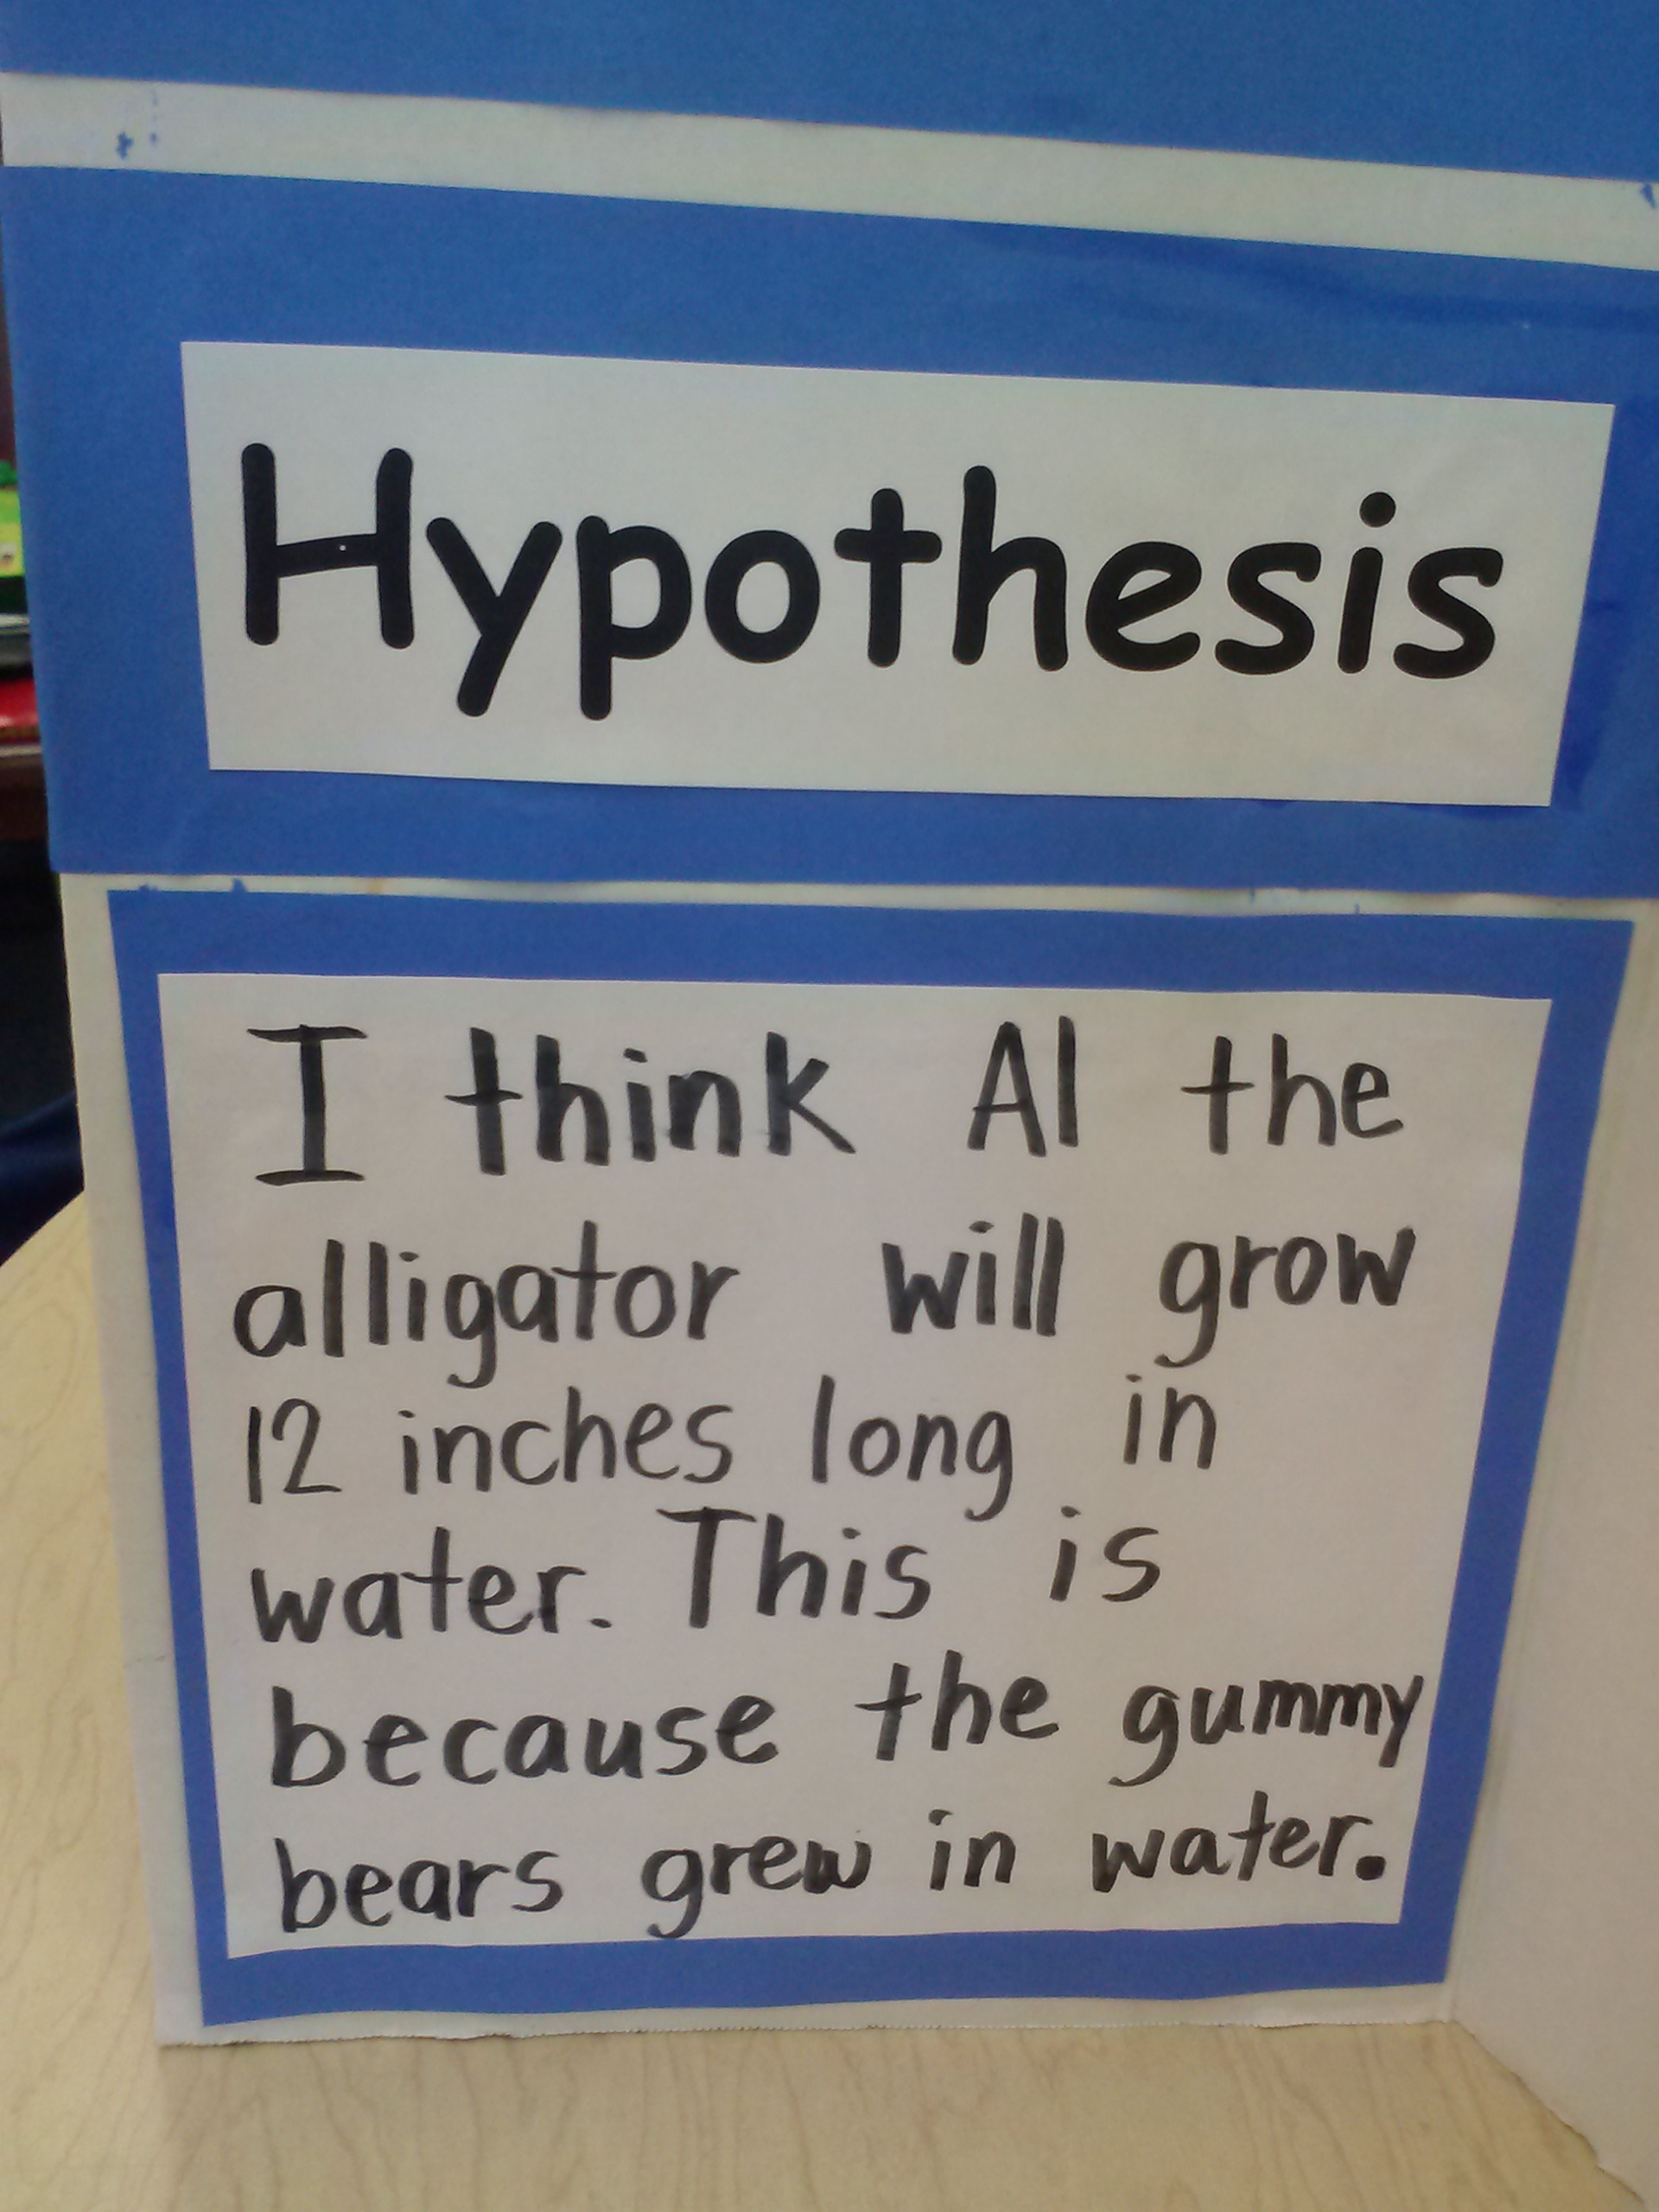 Hypothesis
I think Al the
alligator will grow
12 inches long in
water. This is
because the gummy
bears grew in water.